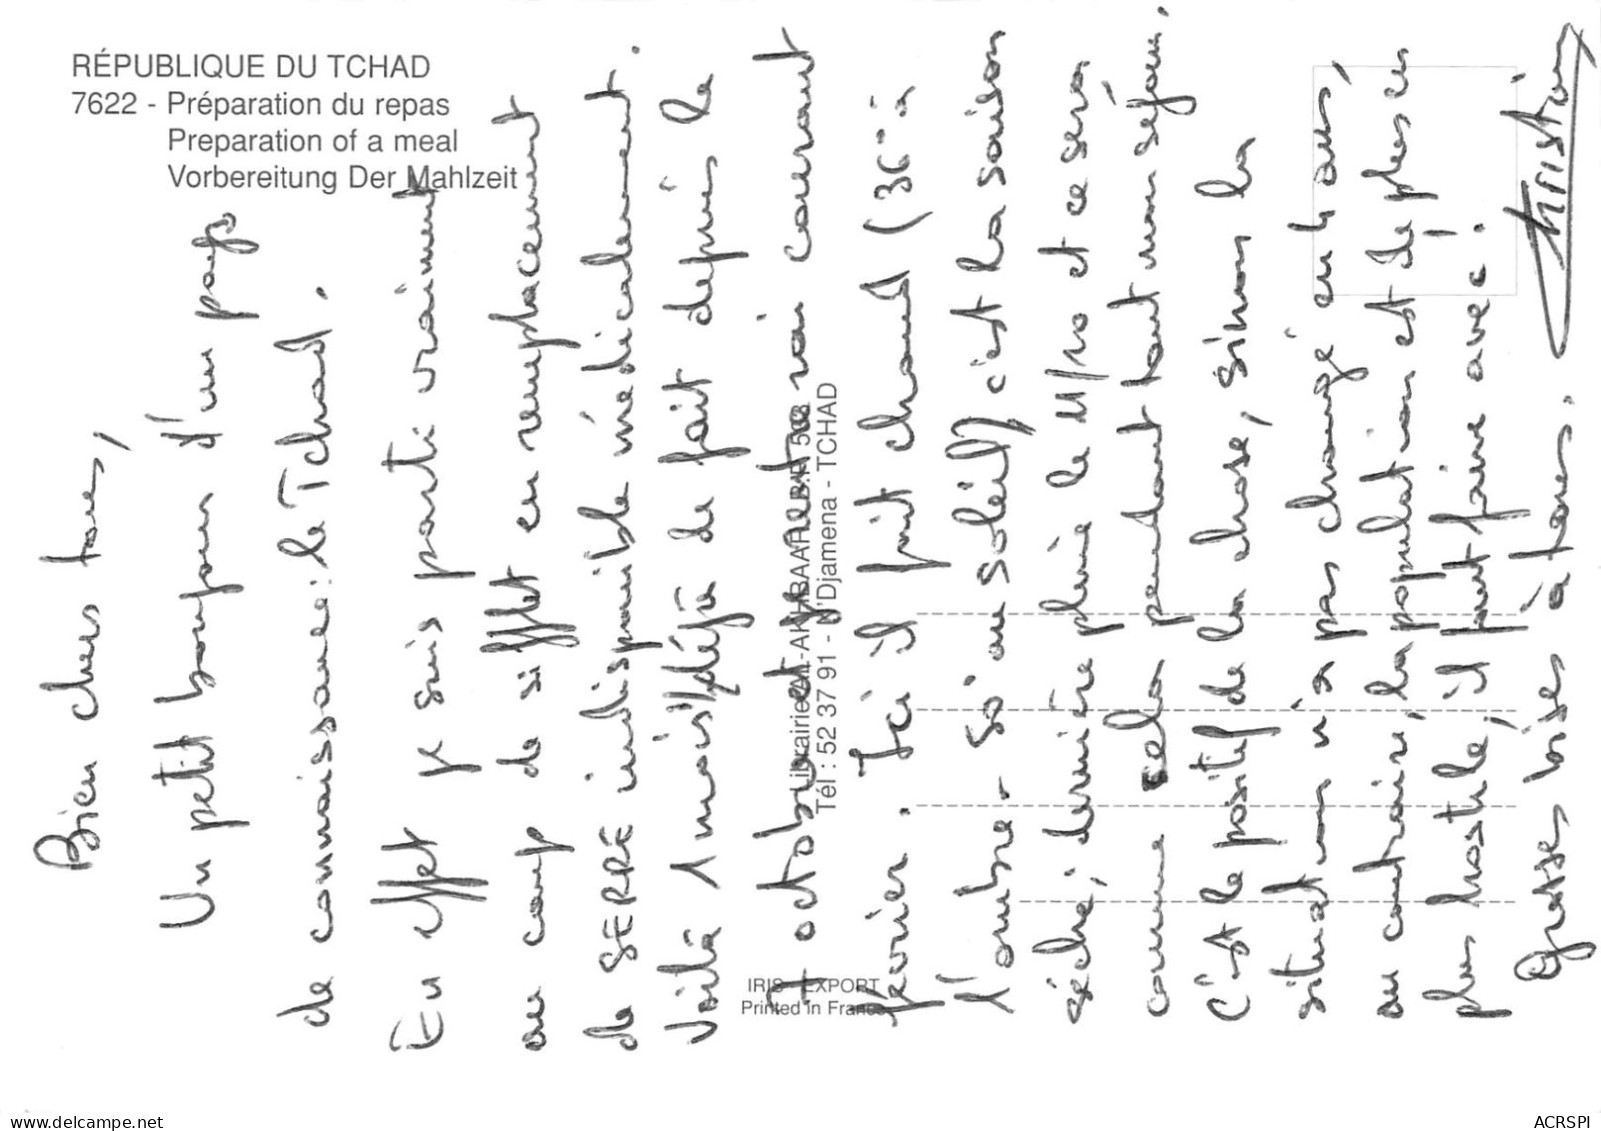 RÉPUBLIQUE DU TCHAD
7622 - Préparation du repas
Preparation of a meal
Vorbereitung Der Mahlzeit
Bien chers tous,
Un petit bonjour d'un pays
de connaissance : le Tchad.
En effet je suis parti vraiment
au coup de sifflet en remplacement
de SERRE indisponible médicalement.
Voilà 1 mois 1/2 déjà de fait depuis le
7 octobre et je rentre mi courant
février. Ici il fait chaud (36° à
l'ombre - 50° au soleil) c'est la saison
sèche ; dernière pluie le 11/10 et ce sera
comme cela pendant tout mon séjour.
C'est le positif de la chose, sinon la
situation n'a pas changé en 4 ans,
au contraire, la population est de plus en
plus hostile, il faut faire avec !
Grosses bises à tous.
Christian
Librairie AL-AKHBAAR B.P.
Tél : 52 37 91 - N'Djamena - TCHAD
IRIS EXPORT
Printed in France
delcampe.net
ACRSPI